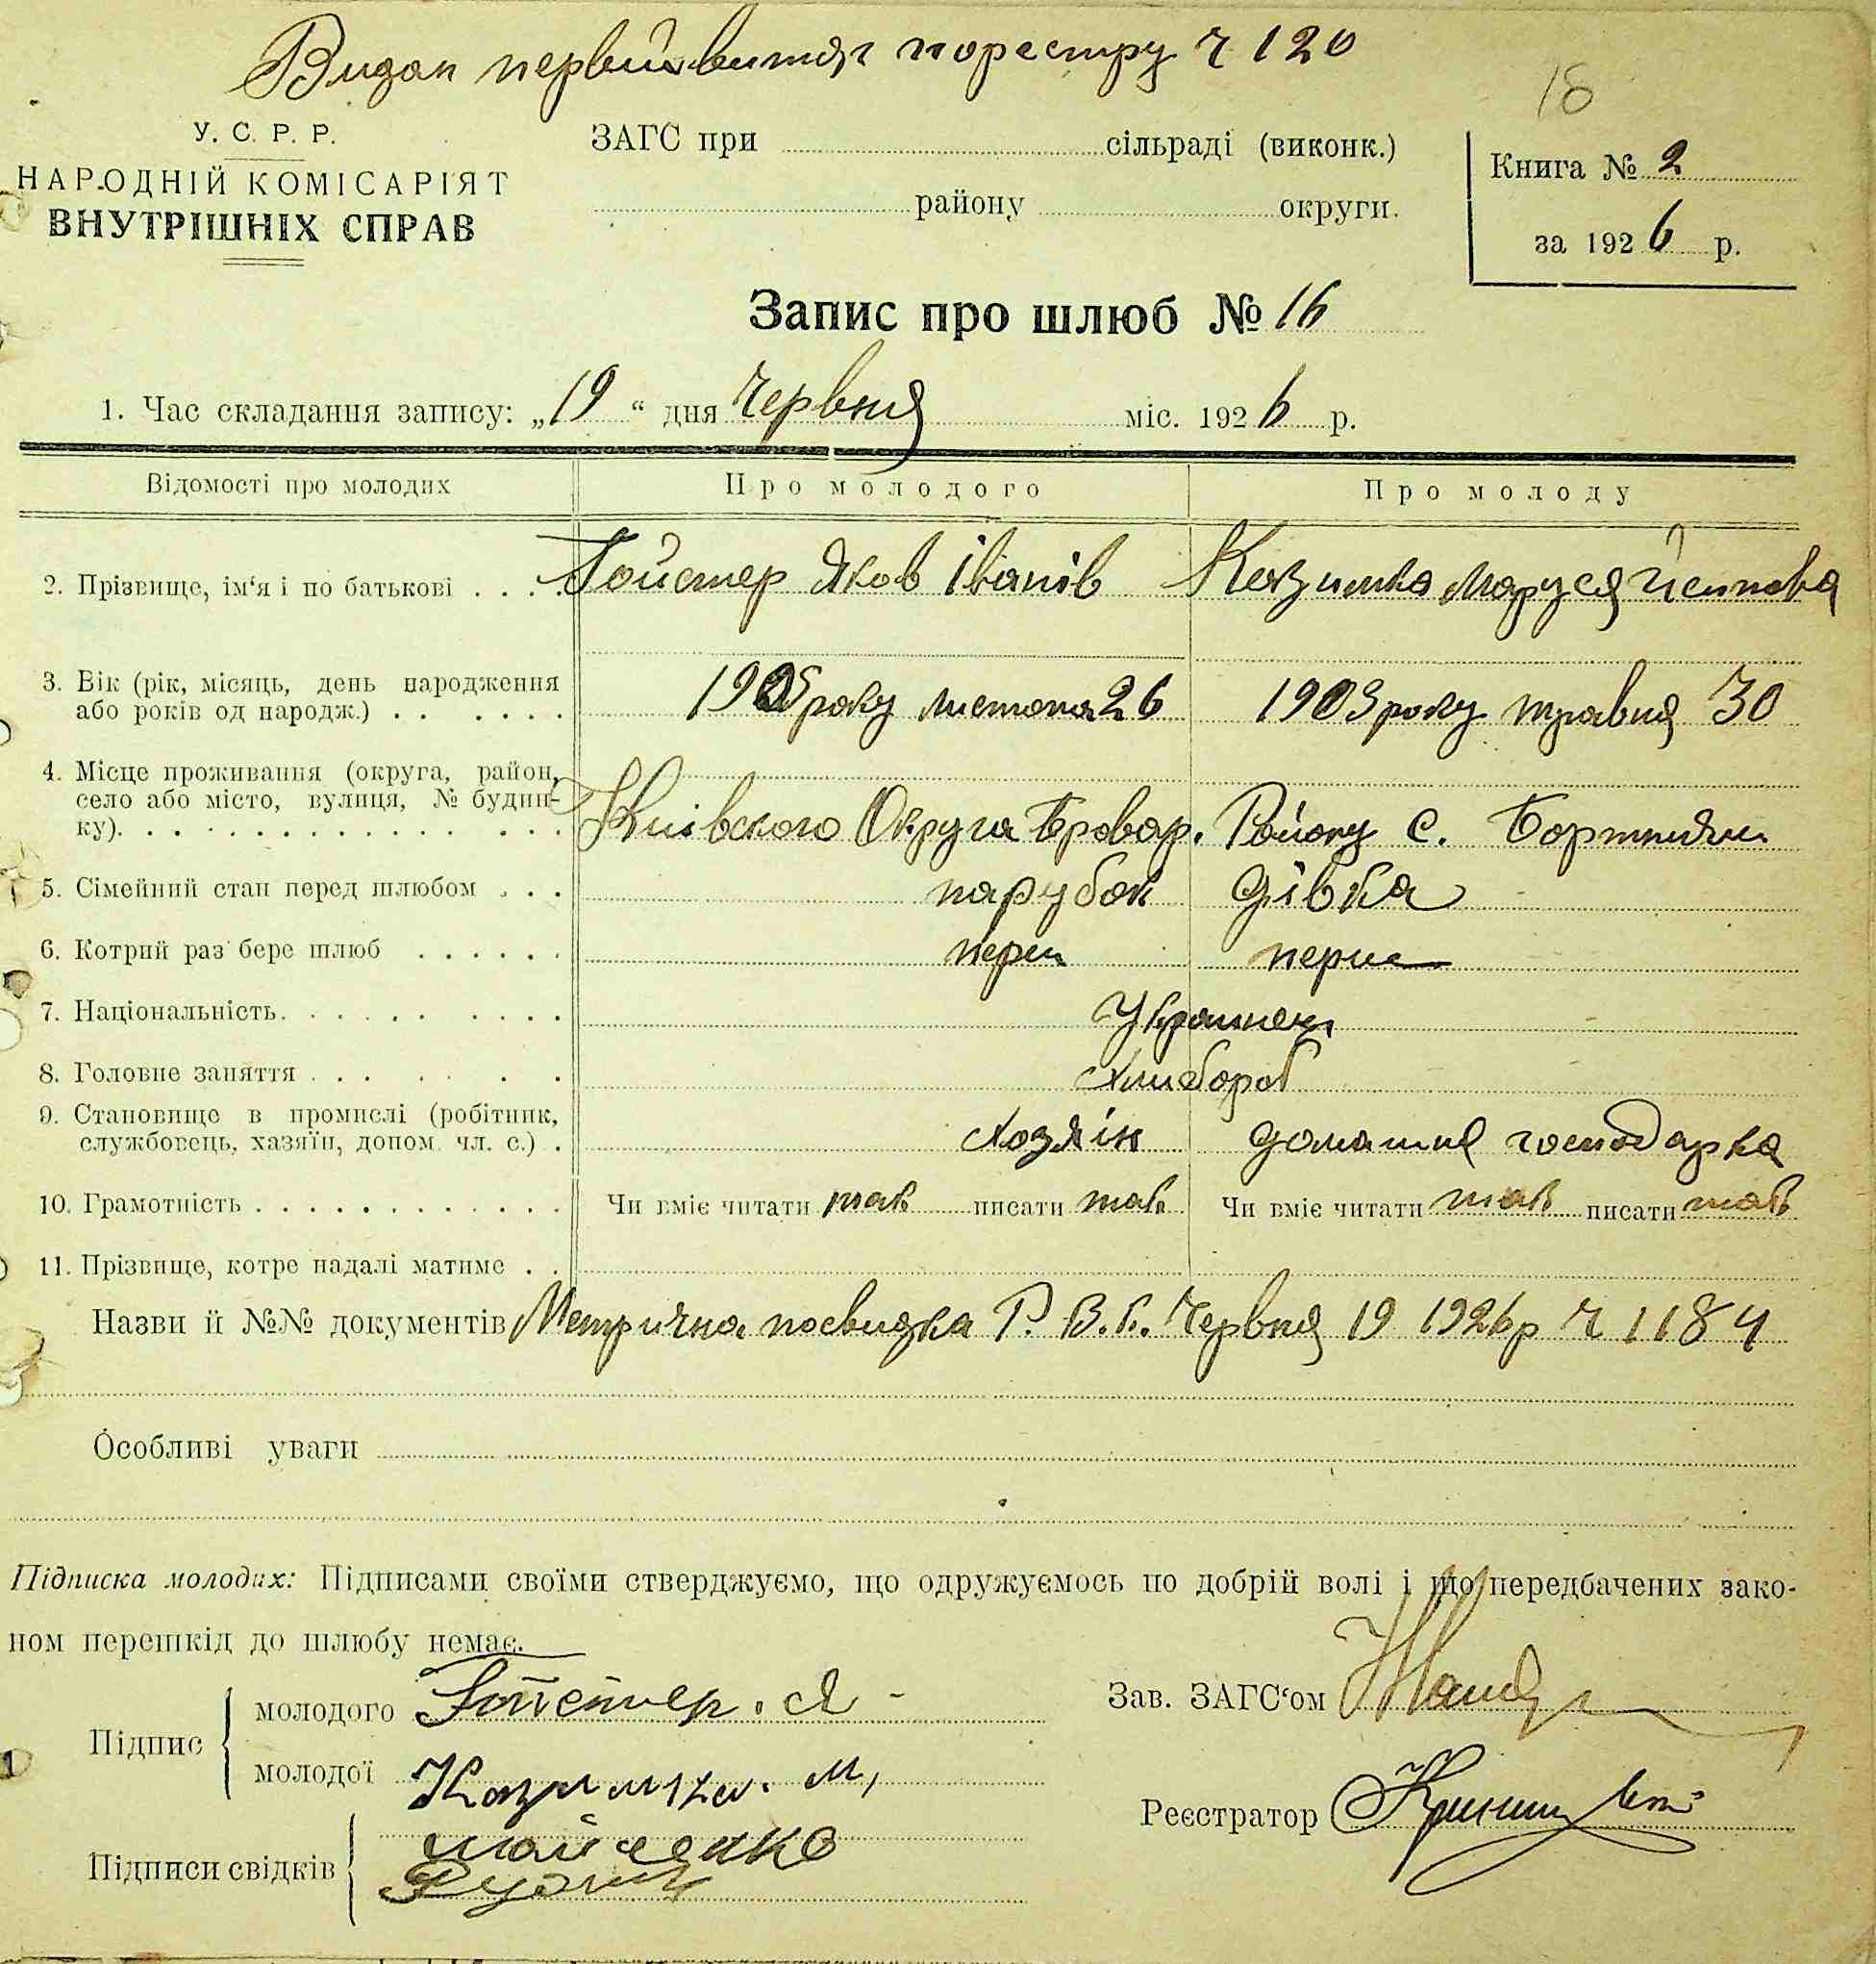 Видан первий витяг по рестру Ч 120
18
У. С. Р. Р.
НАРОДНІЙ КОМІСАРІЯТ
ВНУТРІШНІХ СПРАВ
ЗАГС при сільраді (виконк.)
району округи.
Книга № 2
за 1926 р.
Запис про шлюб № 16
1. Час складання запису: „19“ дня Червня міс. 1926 р.
Відомості про молодих Про молодого Про молоду
2. Прізвище, ім‘я і по батькові Гойстер Яков Іванів Казимка Маруся Йсипова
3. Вік (рік, місяць, день народження
або років од народж.) 1905 року листопа 26 1903 року травня 30
4. Місце проживання (округа, район,
село або місто, вулиця, № будин-
ку) Київского Округа Бровар. Району С. Бортничи
5. Сімейний стан перед шлюбом парубок дівка
6. Котрий раз бере шлюб перш перше
7. Національність Украинец
8. Головне заняття Хлибороб
9. Становище в промислі (робітник,
службовець, хазяїн, допом. чл. с.) Хозяін домашня господарка
10. Грамотність Чи вміє читати так писати так Чи вміє читати так писати так
11. Прізвище, котре надалі матиме
Назви й №№ документів Метрична посвидка Р. В. К. Червня 19 1926 р Ч 1184
Особливі уваги
Підписка молодих: Підписами своїми стверджуємо, що одружуємось по добрій волі і що передбачених зако-
ном перешкід до шлюбу немає.
Підпис
молодого Гойстер. Я
молодої Казимка. М,
Зав. ЗАГС‘ом
Реєстратор
Підписи свідків